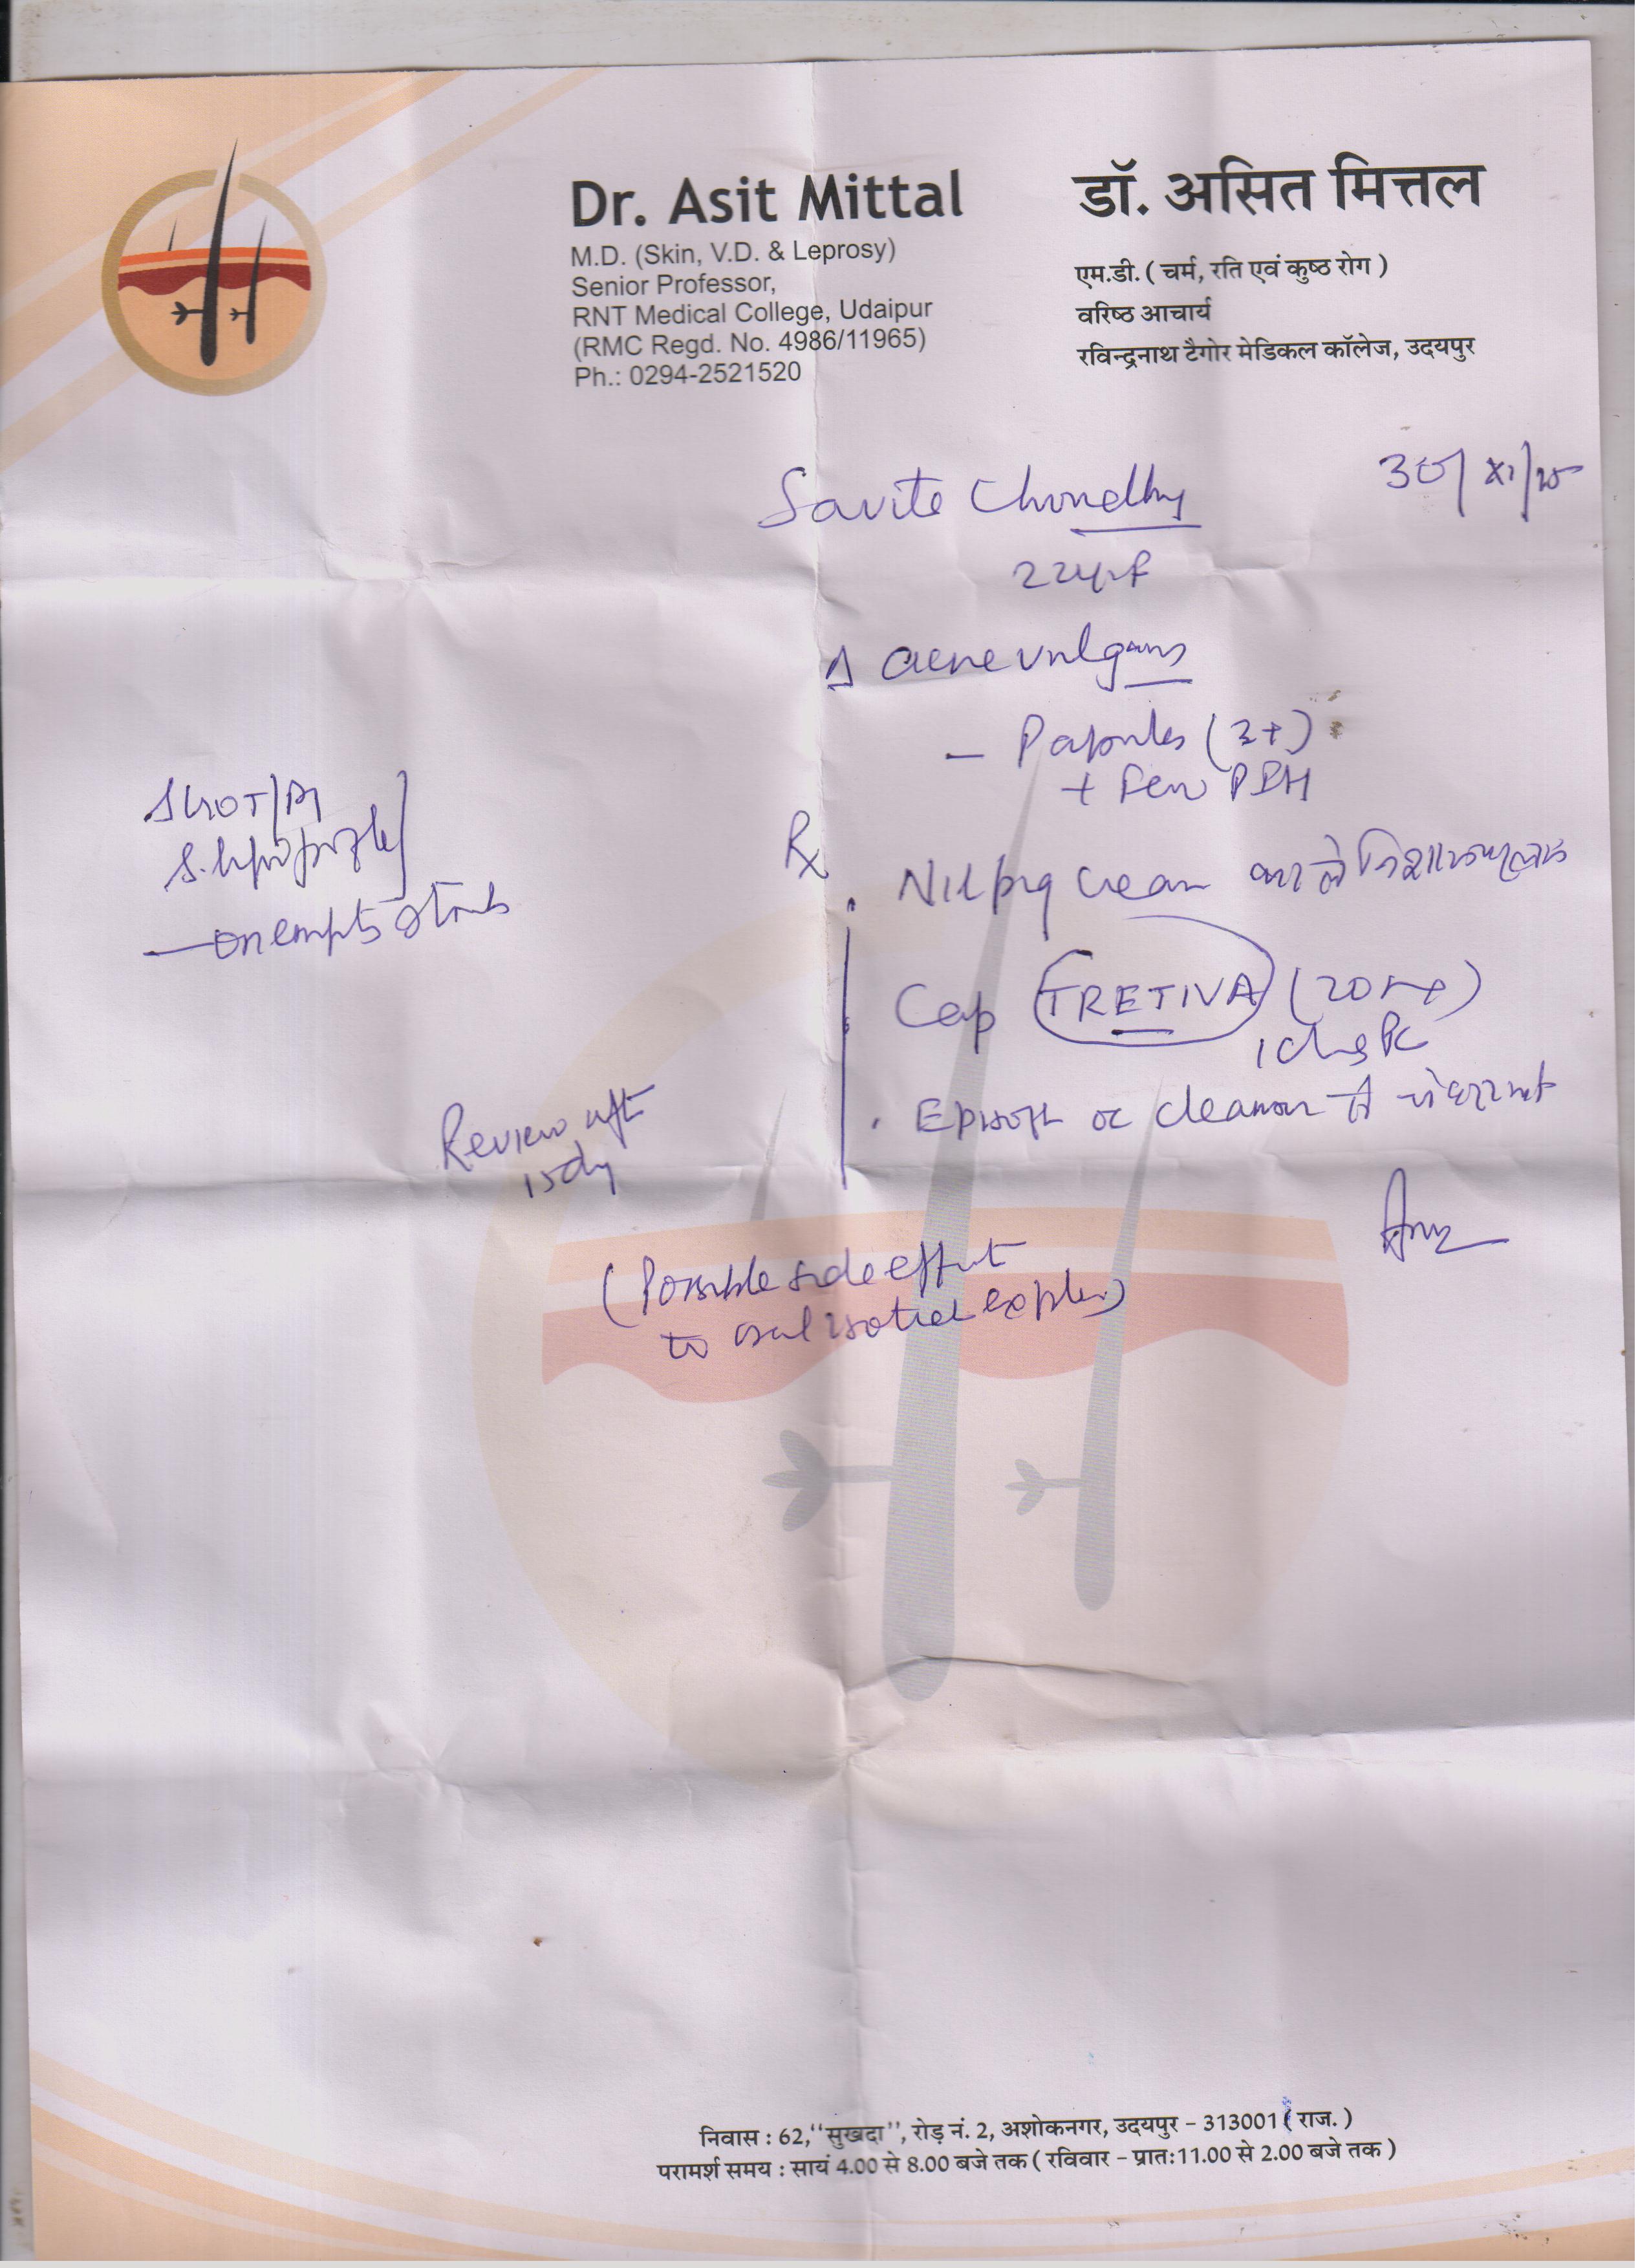 Dr. Asit Mittal
M.D. (Skin, V.D. & Leprosy)
Senior Professor,
RNT Medical College, Udaipur
(RMC Regd. No. 4986/11965)
Ph.: 0294-2521520
डॉ. असित मित्तल
एम.डी. ( चर्म, रति एवं कुष्ठ रोग )
वरिष्ठ आचार्य
रविन्द्रनाथ टैगोर मेडिकल कॉलेज, उदयपुर
30/XI/25
Savite
22yrf
Δ acne vulgaris
- Papules (3+)
+ few PIH
SGOT/PT
S. lipid profile
- on empty stomach
Rx
cream काले निशान
Cap TRETIVA (20mg)
Episoft cleanser से
Review after
15 day
(Possible side effect
to oral explain)
निवास : 62,''सुखदा'', रोड़ नं. 2, अशोकनगर, उदयपुर - 313001 ( राज. )
परामर्श समय : सायं 4.00 से 8.00 बजे तक ( रविवार - प्रातः11.00 से 2.00 बजे तक )